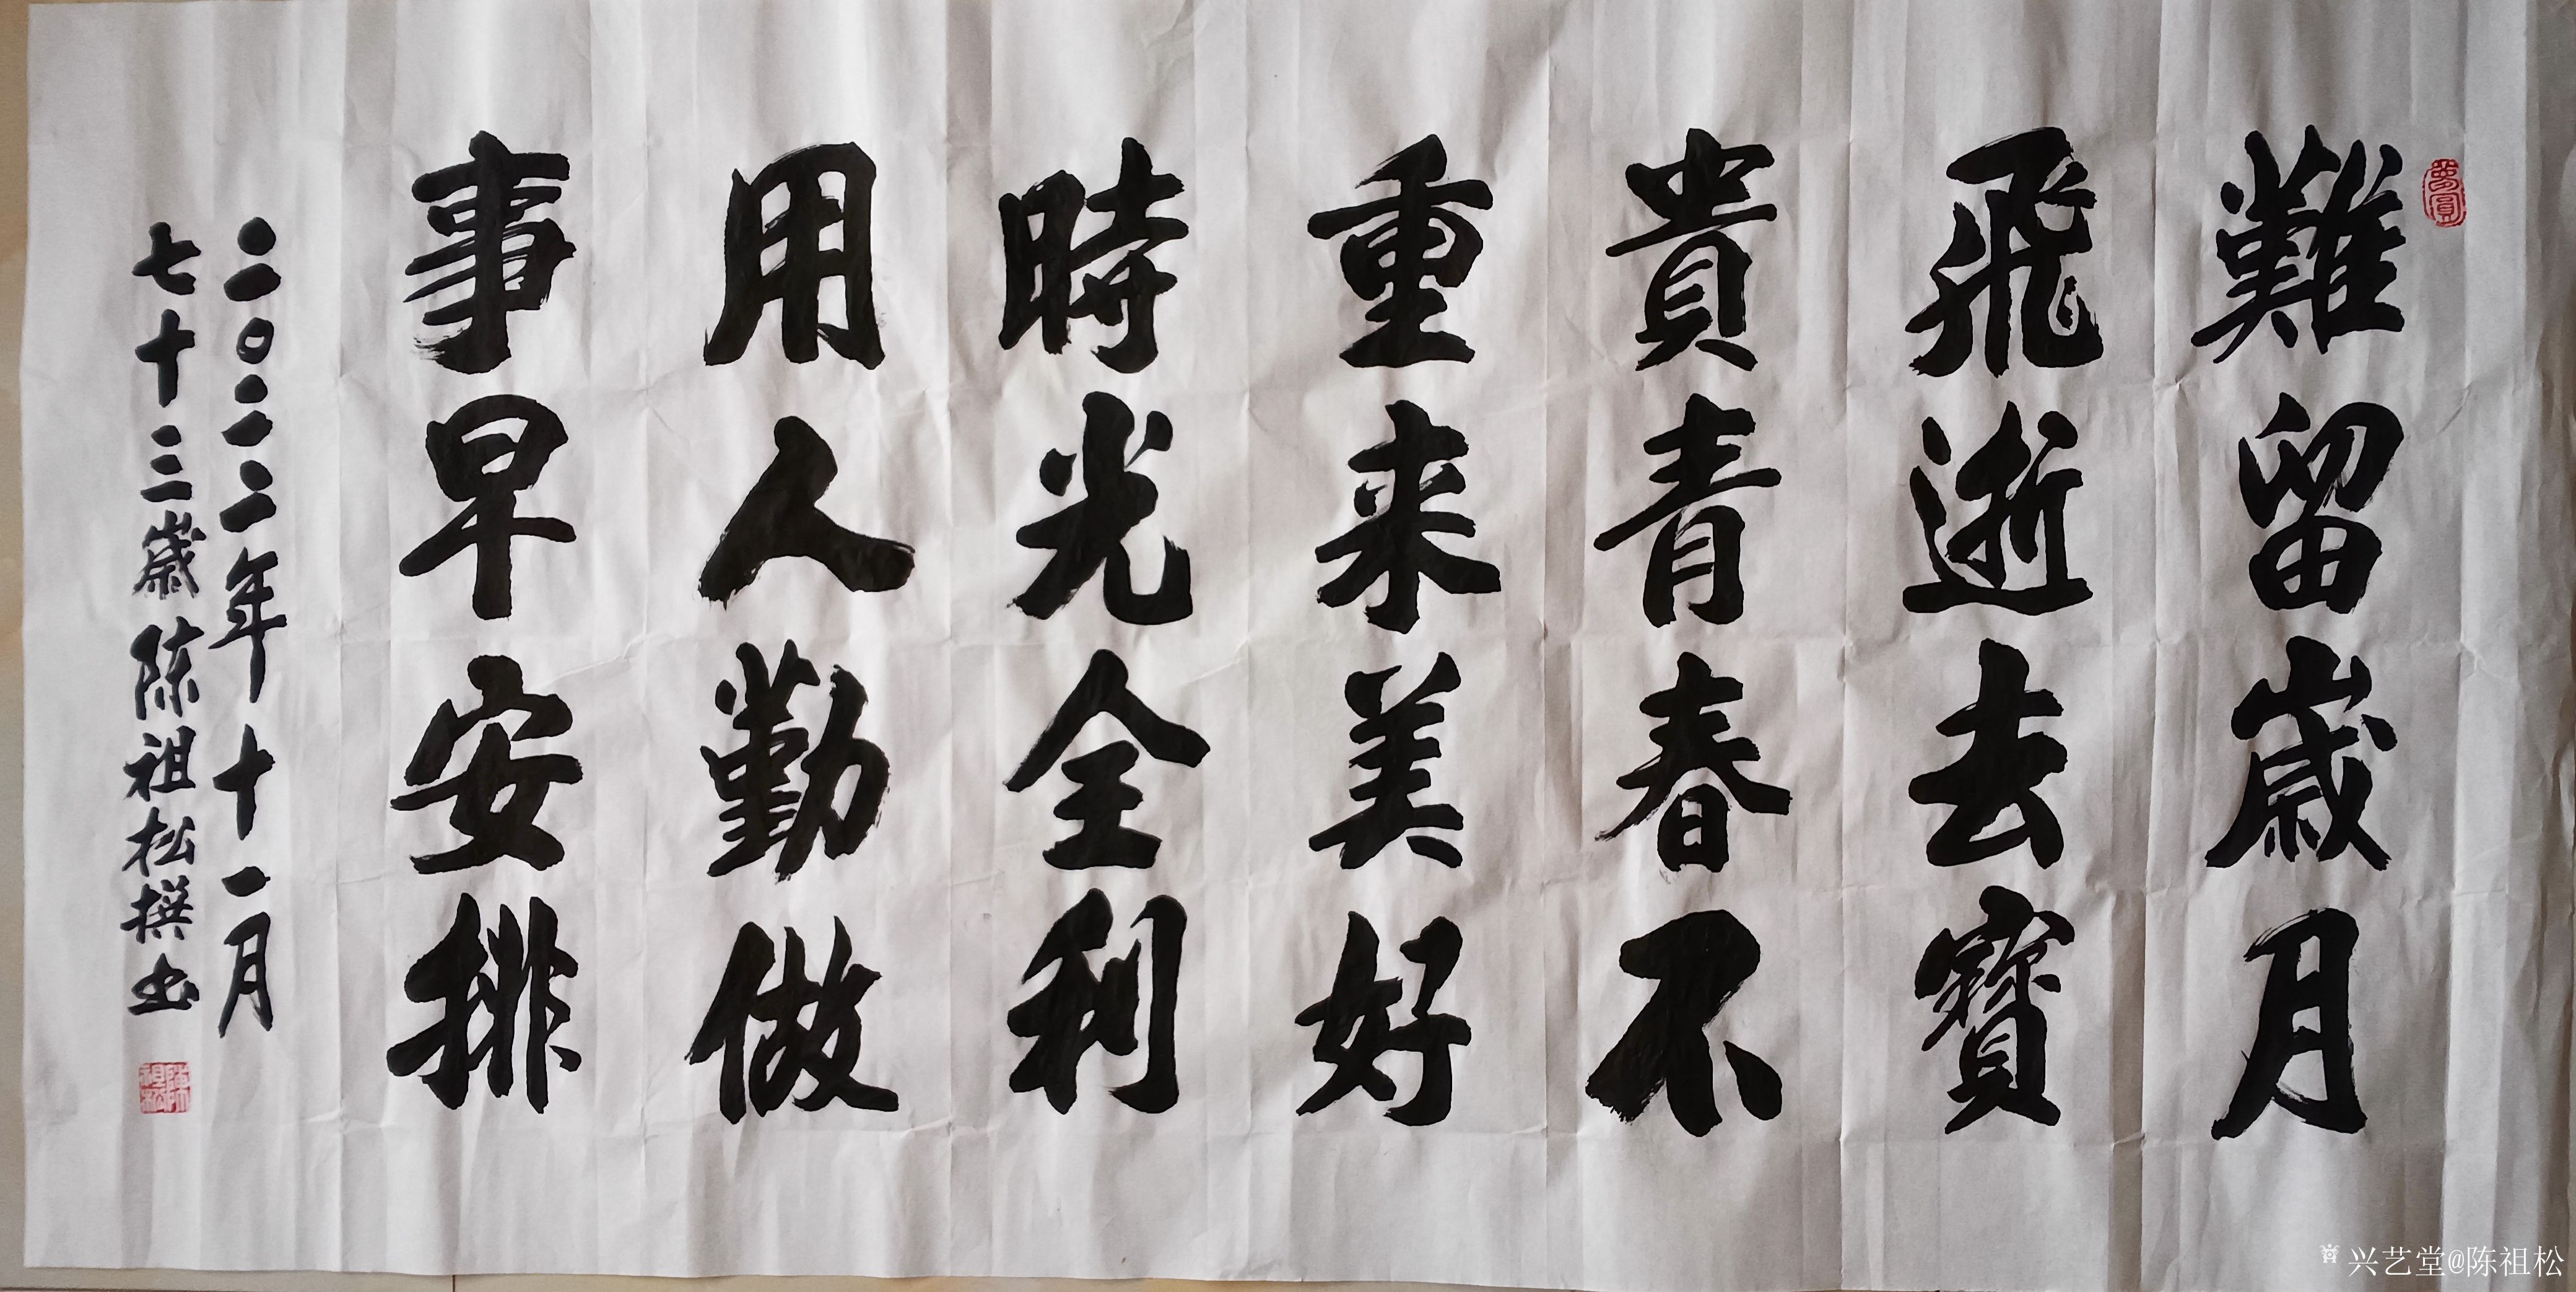 難留歲月
飛逝去寶
貴青春不
重来美好
時光全利
用人勤做
事早安排
二〇二二年十一月
七十三歲陈祖松撰书
兴艺堂@陈祖松